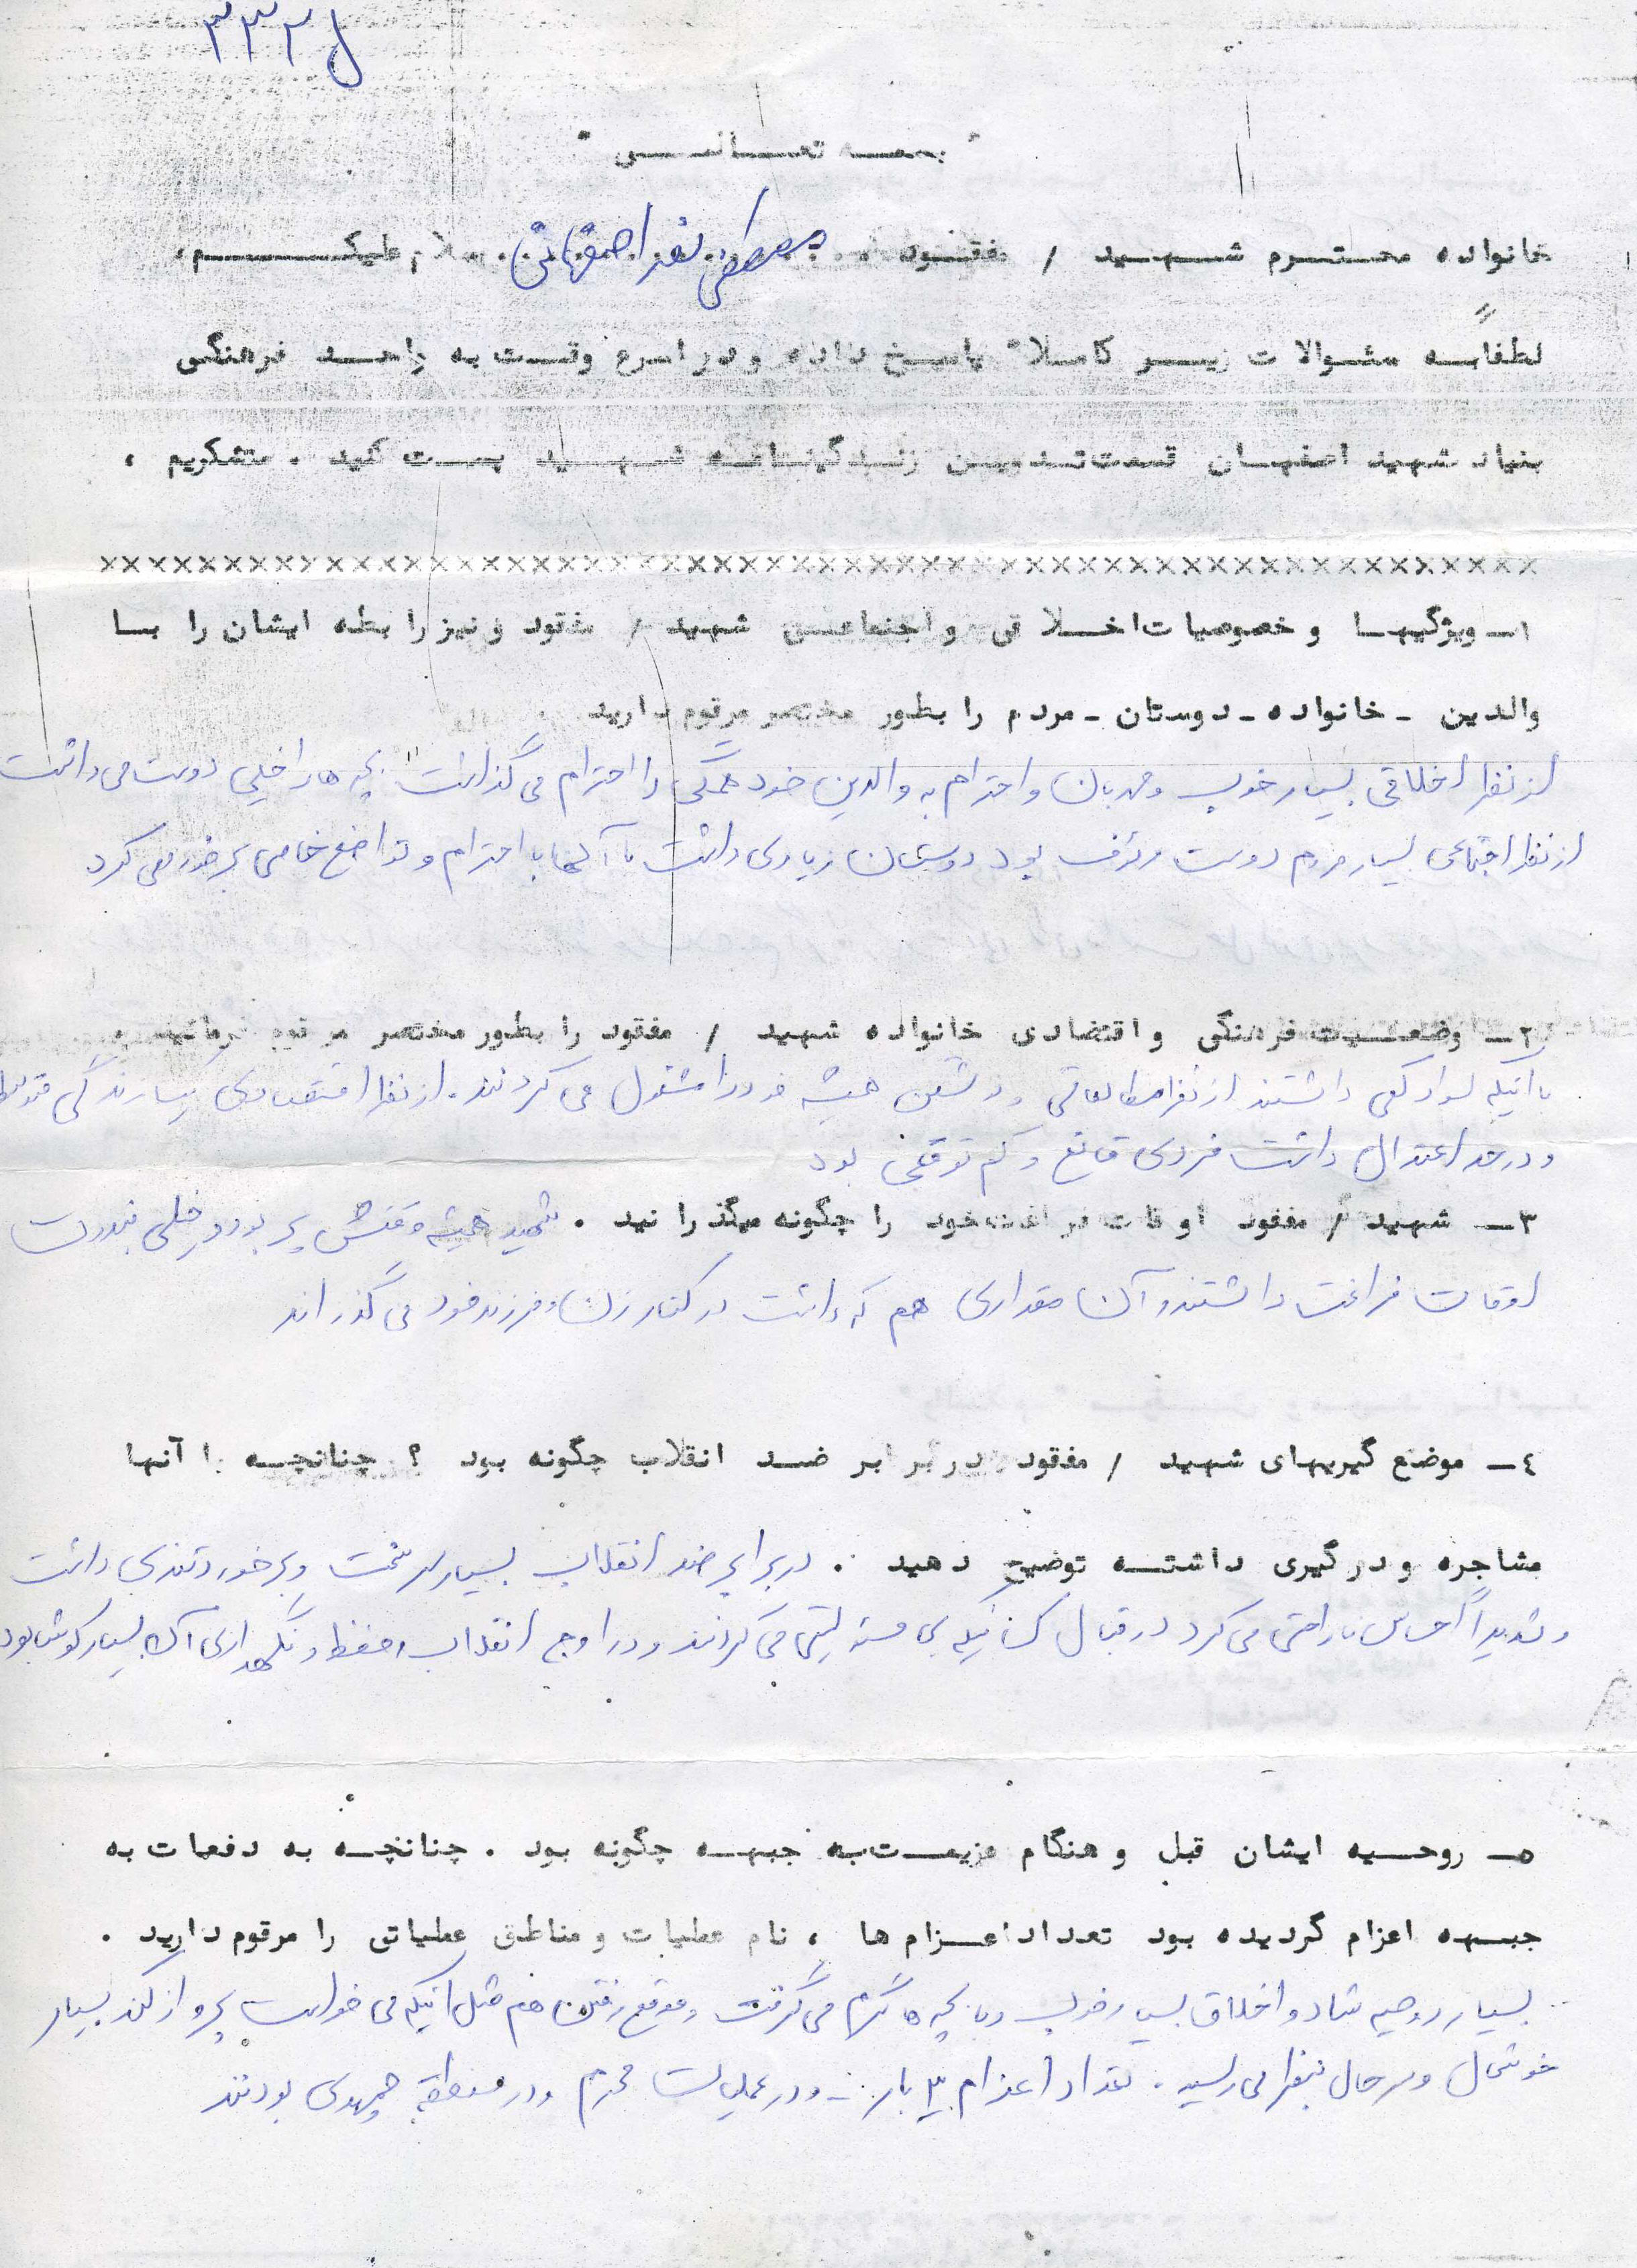 ۳۳۲ل
" بسمه تعالی "
خانواده محترم شهید / مفقود مصطفی نصر اصفهانی سلام علیکم،
لطفا به سئوالات زیر کاملا" پاسخ داده و در اسرع وقت به واحد فرهنگی
بنیاد شهید اصفهان قسمت تدوین زندگینامه شهید پست کنید . متشکریم ،
××××××××××××××××××××××××××××××××××××××××××××××××××××××××
۱ـ ویژگیها و خصوصیات اخلاقی و اجتماعی شهید / مفقود و نیز رابطه ایشان را با
والدین ـ خانواده ـ دوستان ـ مردم را بطور مختصر مرقوم دارید
از نظر اخلاقی بسیار خوب و مهربان و احترام به والدین خود همگی را احترام می گذاشت بچه ها را خیلی دوست می داشت
از نظر اجتماعی بسیار مردم دوست بود دوستان زیادی داشت با آنها با احترام و تواضع خاصی برخورد می کرد
۲ـ وضعیت فرهنگی و اقتضادی خانواده شهید / مفقود را بطور مختصر مرقوم فرمائید .
با اینکه سواد کمی داشتند از نظر مطالعاتی همیشه خود را مشغول می کردند. از نظر اقتصادی بسیار زندگی متوسط
و در حد اعتدال داشت فردی قانع و کم توقعی بود
۳ـ شهید / مفقود اوقات فراغت خود را چگونه میگذرانید . شهید همیشه وقتش پر بود و خیلی بندرت
اوقات فراغت داشتند و آن مقداری هم که داشت در کنار زن و فرزند خود می گذراند
٤ـ موضع گیریهای شهید / مفقود در برابر ضد انقلاب چگونه بود ؟ چنانچه با آنها
مشاجره و درگیری داشته توضیح دهید . در برابر ضد انقلاب بسیار سرسخت و برخورد تندی داشت
و شدیداً احساس ناراحتی می کرد در قبال کسانیکه بی مسئولیتی می کردند و در اوج انقلاب و حفظ و نگهداری آن بسیار کوشا بود
٥ـ روحیه ایشان قبل و هنگام عزیمت به جبهه چگونه بود . چنانچه به دفعات به
جبهه اعزام گردیده بود تعداد اعزام ها ، نام عملیات و مناطق عملیاتی را مرقوم دارید .
بسیار روحیه شاد و اخلاق بسیار خوب و با بچه ها گرم می گرفت و موقع رفتن هم مثل اینکه می خواست پرواز کند بسیار
خوشحال و سرحال بنظر می رسید . تعداد اعزام ۳ بار ـ و در عملیات محرم و در منطقه بودند